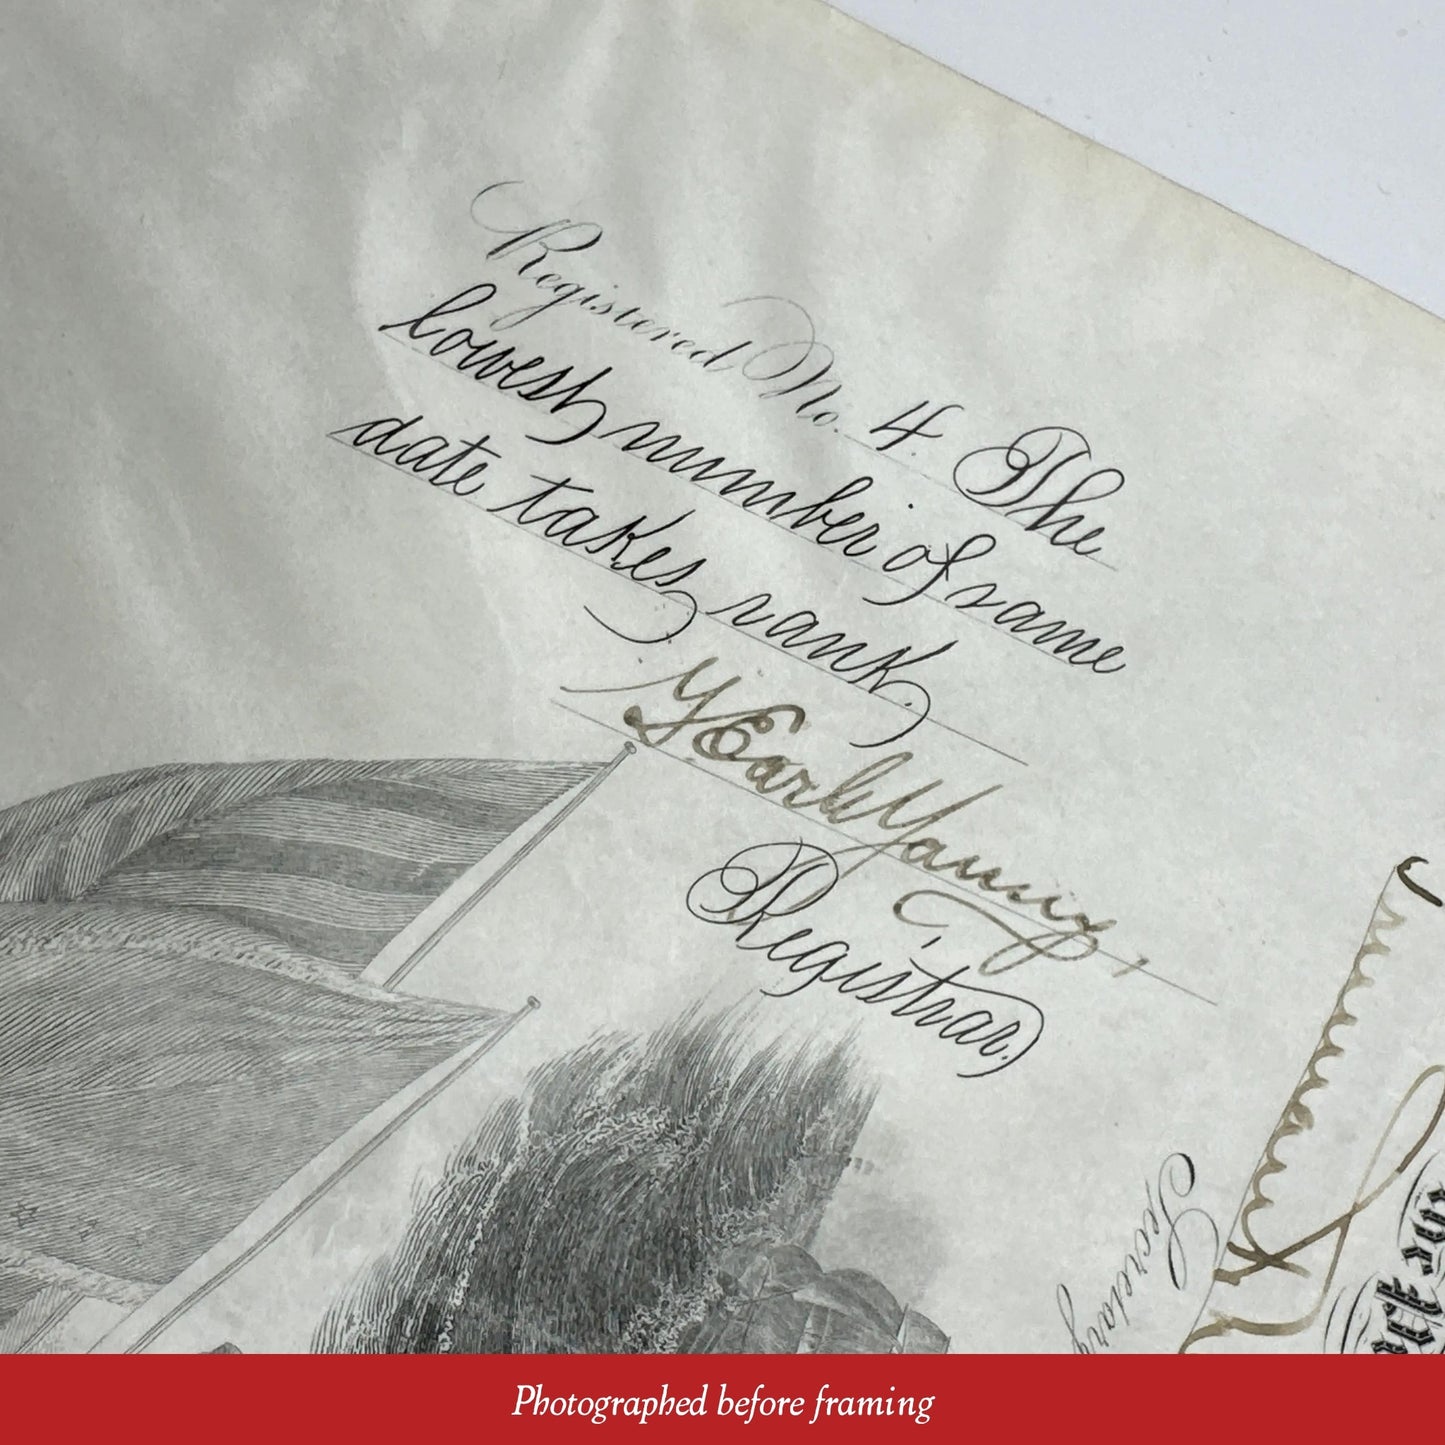 Registered No. 4. The
lowest number of same
date takes rank.
Registrar.
Secretary
Photographed before framing